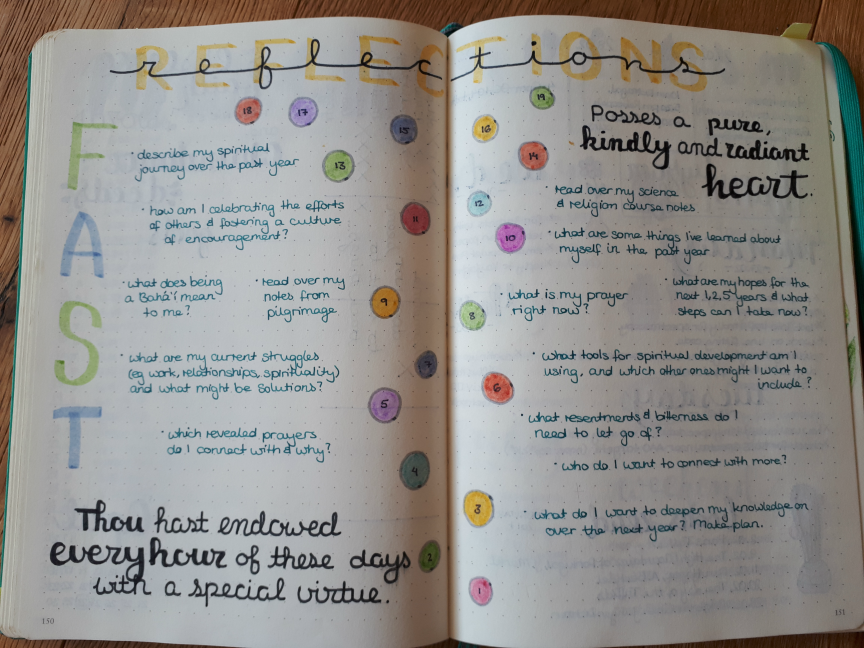 REFLECTIONS
reflections
FAST
18
17
15
13
11
9
7
5
4
2
· describe my spiritual
journey over the past year
· how am I celebrating the efforts
of others & fostering a culture
of encouragement?
· what does being
a Bahá'í mean
to me?
· read over my
notes from
pilgrimage
· what are my current struggles
(eg work, relationships, spirituality)
and what might be solutions?
· which revealed prayers
do I connect with & why?
Thou hast endowed
every hour of these days
with a special virtue.
150
19
16
14
12
10
8
6
3
1
Posses a pure,
kindly and radiant
heart.
· read over my science
& religion course notes
· what are some things I've learned about
myself in the past year
· what is my prayer
right now?
· what are my hopes for the
next 1, 2, 5 years & what
steps can I take now?
· what tools for spiritual development am I
using, and which other ones might I want to
include?
· what resentments & bitterness do I
need to let go of?
· who do I want to connect with more?
· what do I want to deepen my knowledge on
over the next year? Make plan.
151